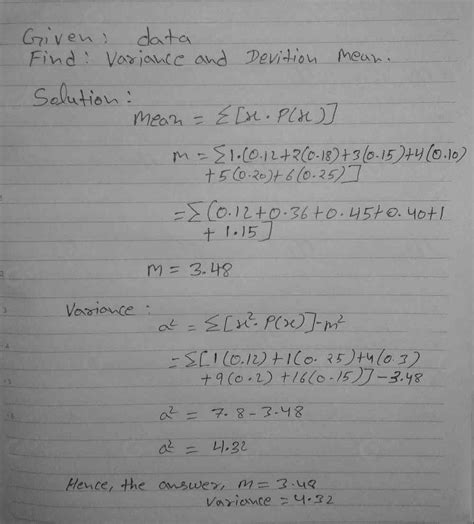 Given: data
Find: Variance and Devition mean.
Solution:
Mean = Σ[x · P(x)]
m = Σ1·(0.12+2(0.18)+3(0.15)+4(0.10)
+5(0.20)+6(0.25)]
= Σ(0.12+0.36+0.45+0.40+1
+ 1.15]
m = 3.48
Variance:
a² = Σ[x²· P(x)]-m²
= Σ[1(0.12)+1(0.25)+4(0.3)
+9(0.2)+16(0.15)]-3.48
a² = 7.8-3.48
a² = 4.32
Hence, the answer, m = 3.48
Variance = 4.32